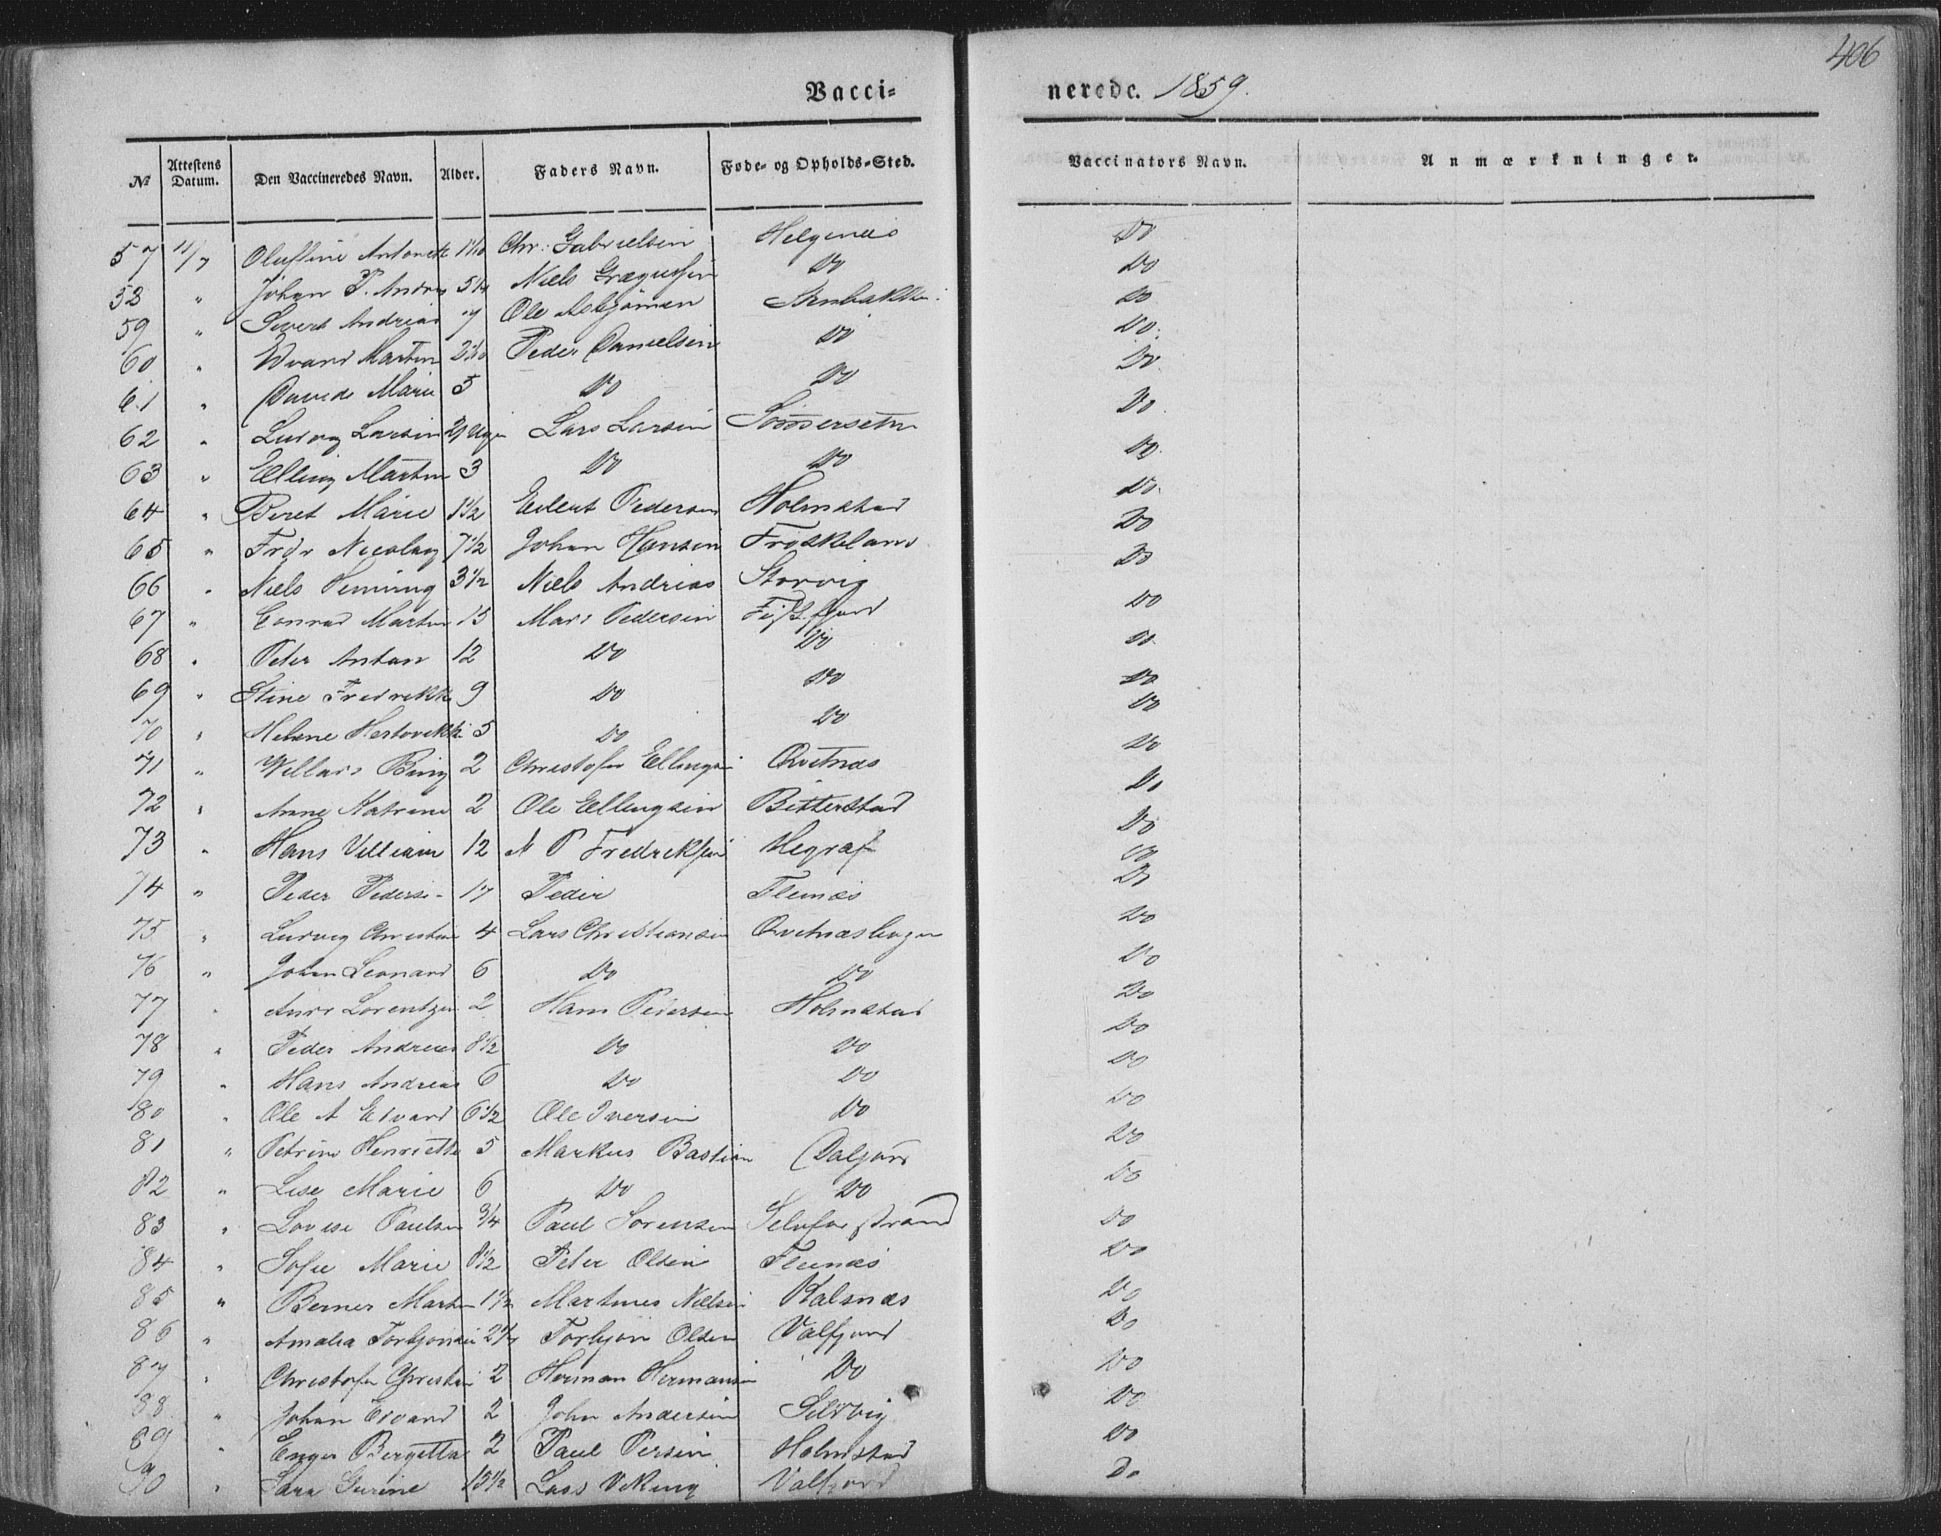 406
Vacci- nerede. 1859.
No Attestens Datum. Den Vaccineredes Navn. Alder. Faders Navn. Føde- og Opholds-Sted. Vaccinators Navn. Anmærkninger.
57 11/7 Oluffine Antonette Chr. Gabrielsen Helgenes Do
58 " Johan P. Andreas Niels Do Do
59 " Sivert Andreas 7 Ole Asbjörnsen Stenbakken Do
60 " Edvard Martin Peder Danielsen Do Do
61 " Marie 5 Do Do Do
62 " Ludvig Larsen 21 Uger Lars Larsen Sommersetn Do
63 " Elling Martin 3 Do Do Do
64 " Beret Marie 1 1/2 Eilert Pedersen Holmstad Do
65 " Frdr Nicolay 7 1/2 Johan Hansen Froskeland Do
66 " Niels Henning 3 1/2 Niels Andreas Storvig Do
67 " Conrad Martin 15 Mars Pedersen Do
68 " Peter Antan 12 Do Do Do
69 " Stine Fredrikke 9 Do Do Do
70 " Helene 5 Do Do Do
71 " Bing 2 Christofer Ellingsen Qvitnæs Do
72 " Anne Katrine 2 Ole Ellingsen Bitterstad Do
73 " Hans Villiam 12 N P Fredriksen Hegraf Do
74 " Peder Peders- 17 Peder Flemæs Do
75 " Ludvig Christian 4 Lars Christiansen Do
76 " Johan Leonard 6 Do Do Do
77 " Lorentze 2 Hans Pedersen Holmstad Do
78 " Peder Andreas 8 1/2 Do Do Do
79 " Hans Andreas 6 Do Do Do
80 " Ole A Edvard 6 1/2 Ole Iversen Do Do
81 " Petrine Henriette 5 Markus Bastian Daljord Do
82 " Lise Marie 6 Do Do Do
83 " Lovise Paulsen 3/4 Paul Sorensen Selnfor strand Do
84 " Sofie Marie 8 1/2 Peter Olsen Flemæs Do
85 " Berner Martin 1 1/2 Martines Nielsen Kalsnæs Do
86 " Amalia Torbjonsen Torbjön Olsen Valfjord Do
87 " Christofer Christian 2 Herman Hermansen Do Do
88 " Johan Edvard 2 John Andersen Selvig Do
89 " Bergetta 2 Paul Persen Holmstad Do
90 " Sara Gurine 15 1/2 Lars Viking Valfjord Do